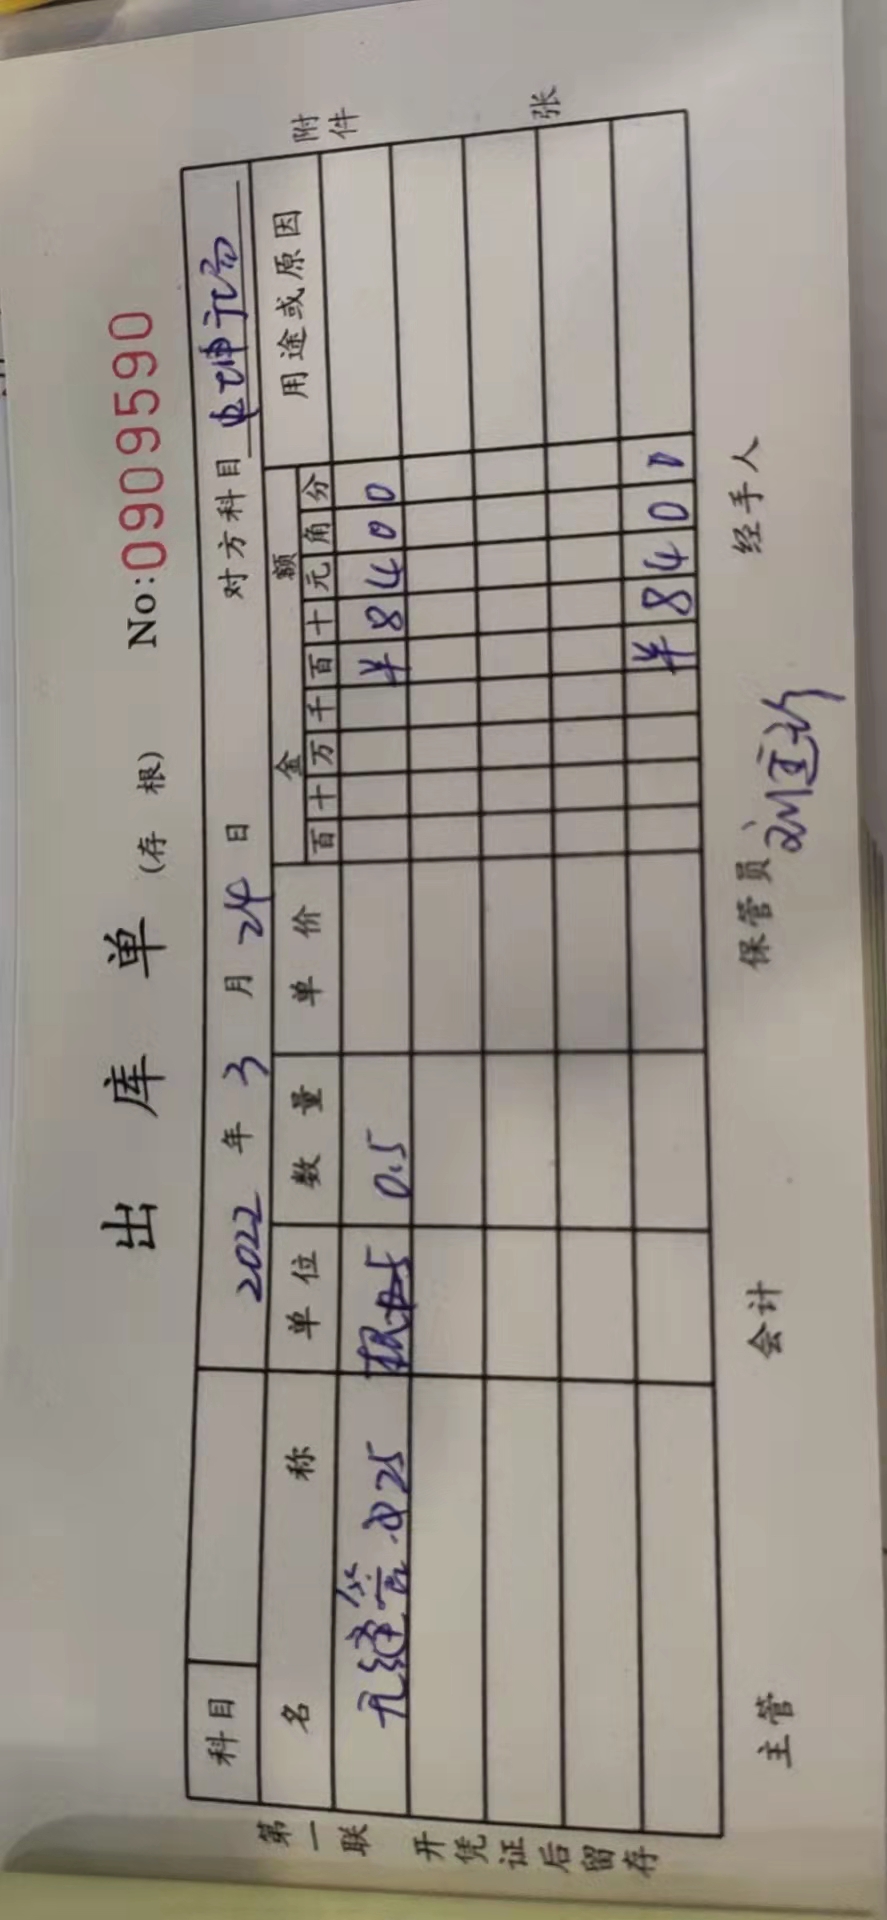 出库单
(存根) No:0909590
科目 2022年3月24日 对方科目
名称 单位 数量 单价 金额 用途或原因
百十万千百十元角分
无缝管 φ25 根 0.5 ¥8400
¥8400
主管 会计 保管员 经手人
第一联 开凭证后留存
附件 张